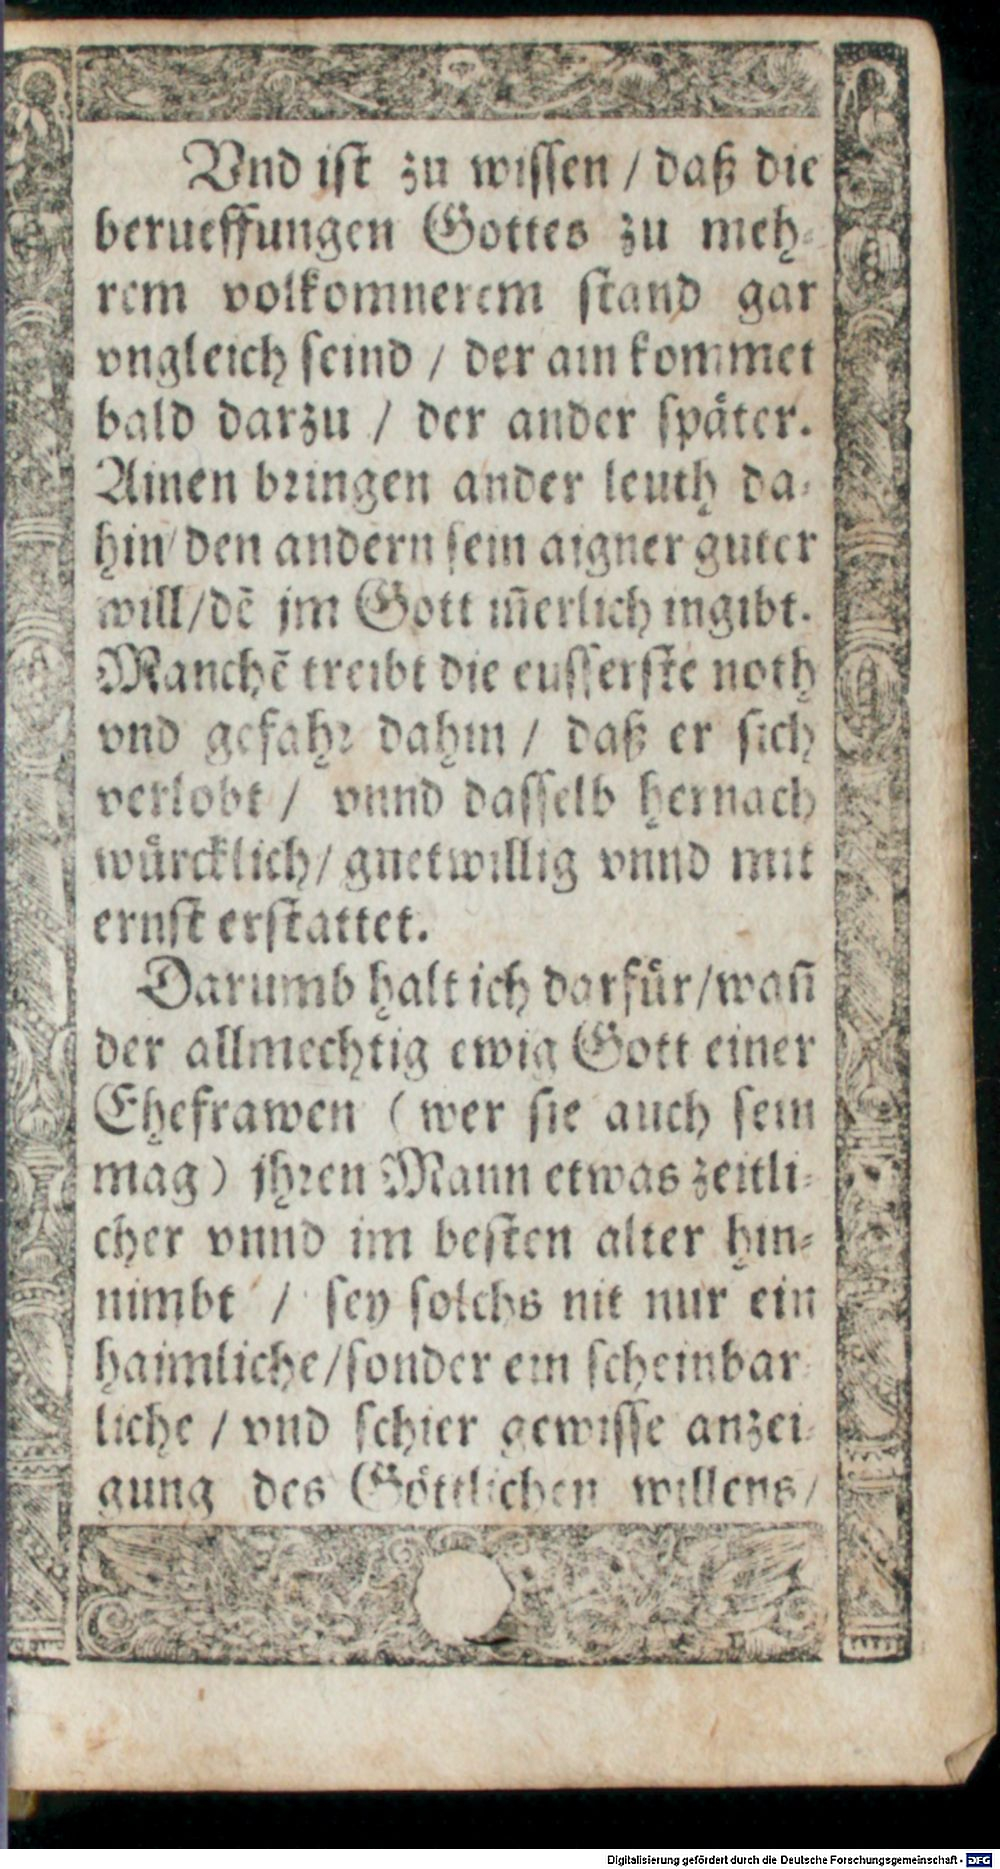 Vnd ist zu wissen / daß die
berueffungen Gottes zu meh-
rem volkomnerem stand gar
vngleich seind / der ain kommet
bald darzu / der ander später.
Ainen bringen ander leuth da-
hin / den andern sein aigner guter
will / dē jm Gott iñerlich ingibt.
Manchē treibt die eusserste noth
vnd gefahr dahin / daß er sich
verlobt / vnnd dasselb hernach
würcklich / guetwillig vnnd mit
ernst erstattet.
Darumb halt ich darfür / wañ
der allmechtig ewig Gott einer
Ehefrawen ( wer sie auch sein
mag ) jhren Mann etwas zeitli-
cher vnnd im besten alter hin-
nimbt / sey solchs nit nur ein
haimliche / sonder ein scheinbar-
liche / vnd schier gewisse anzei-
gung des Göttlichen willens /
Digitalisierung gefördert durch die Deutsche Forschungsgemeinschaft - DFG